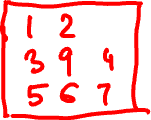 1 2
3 9 4
5 6 7